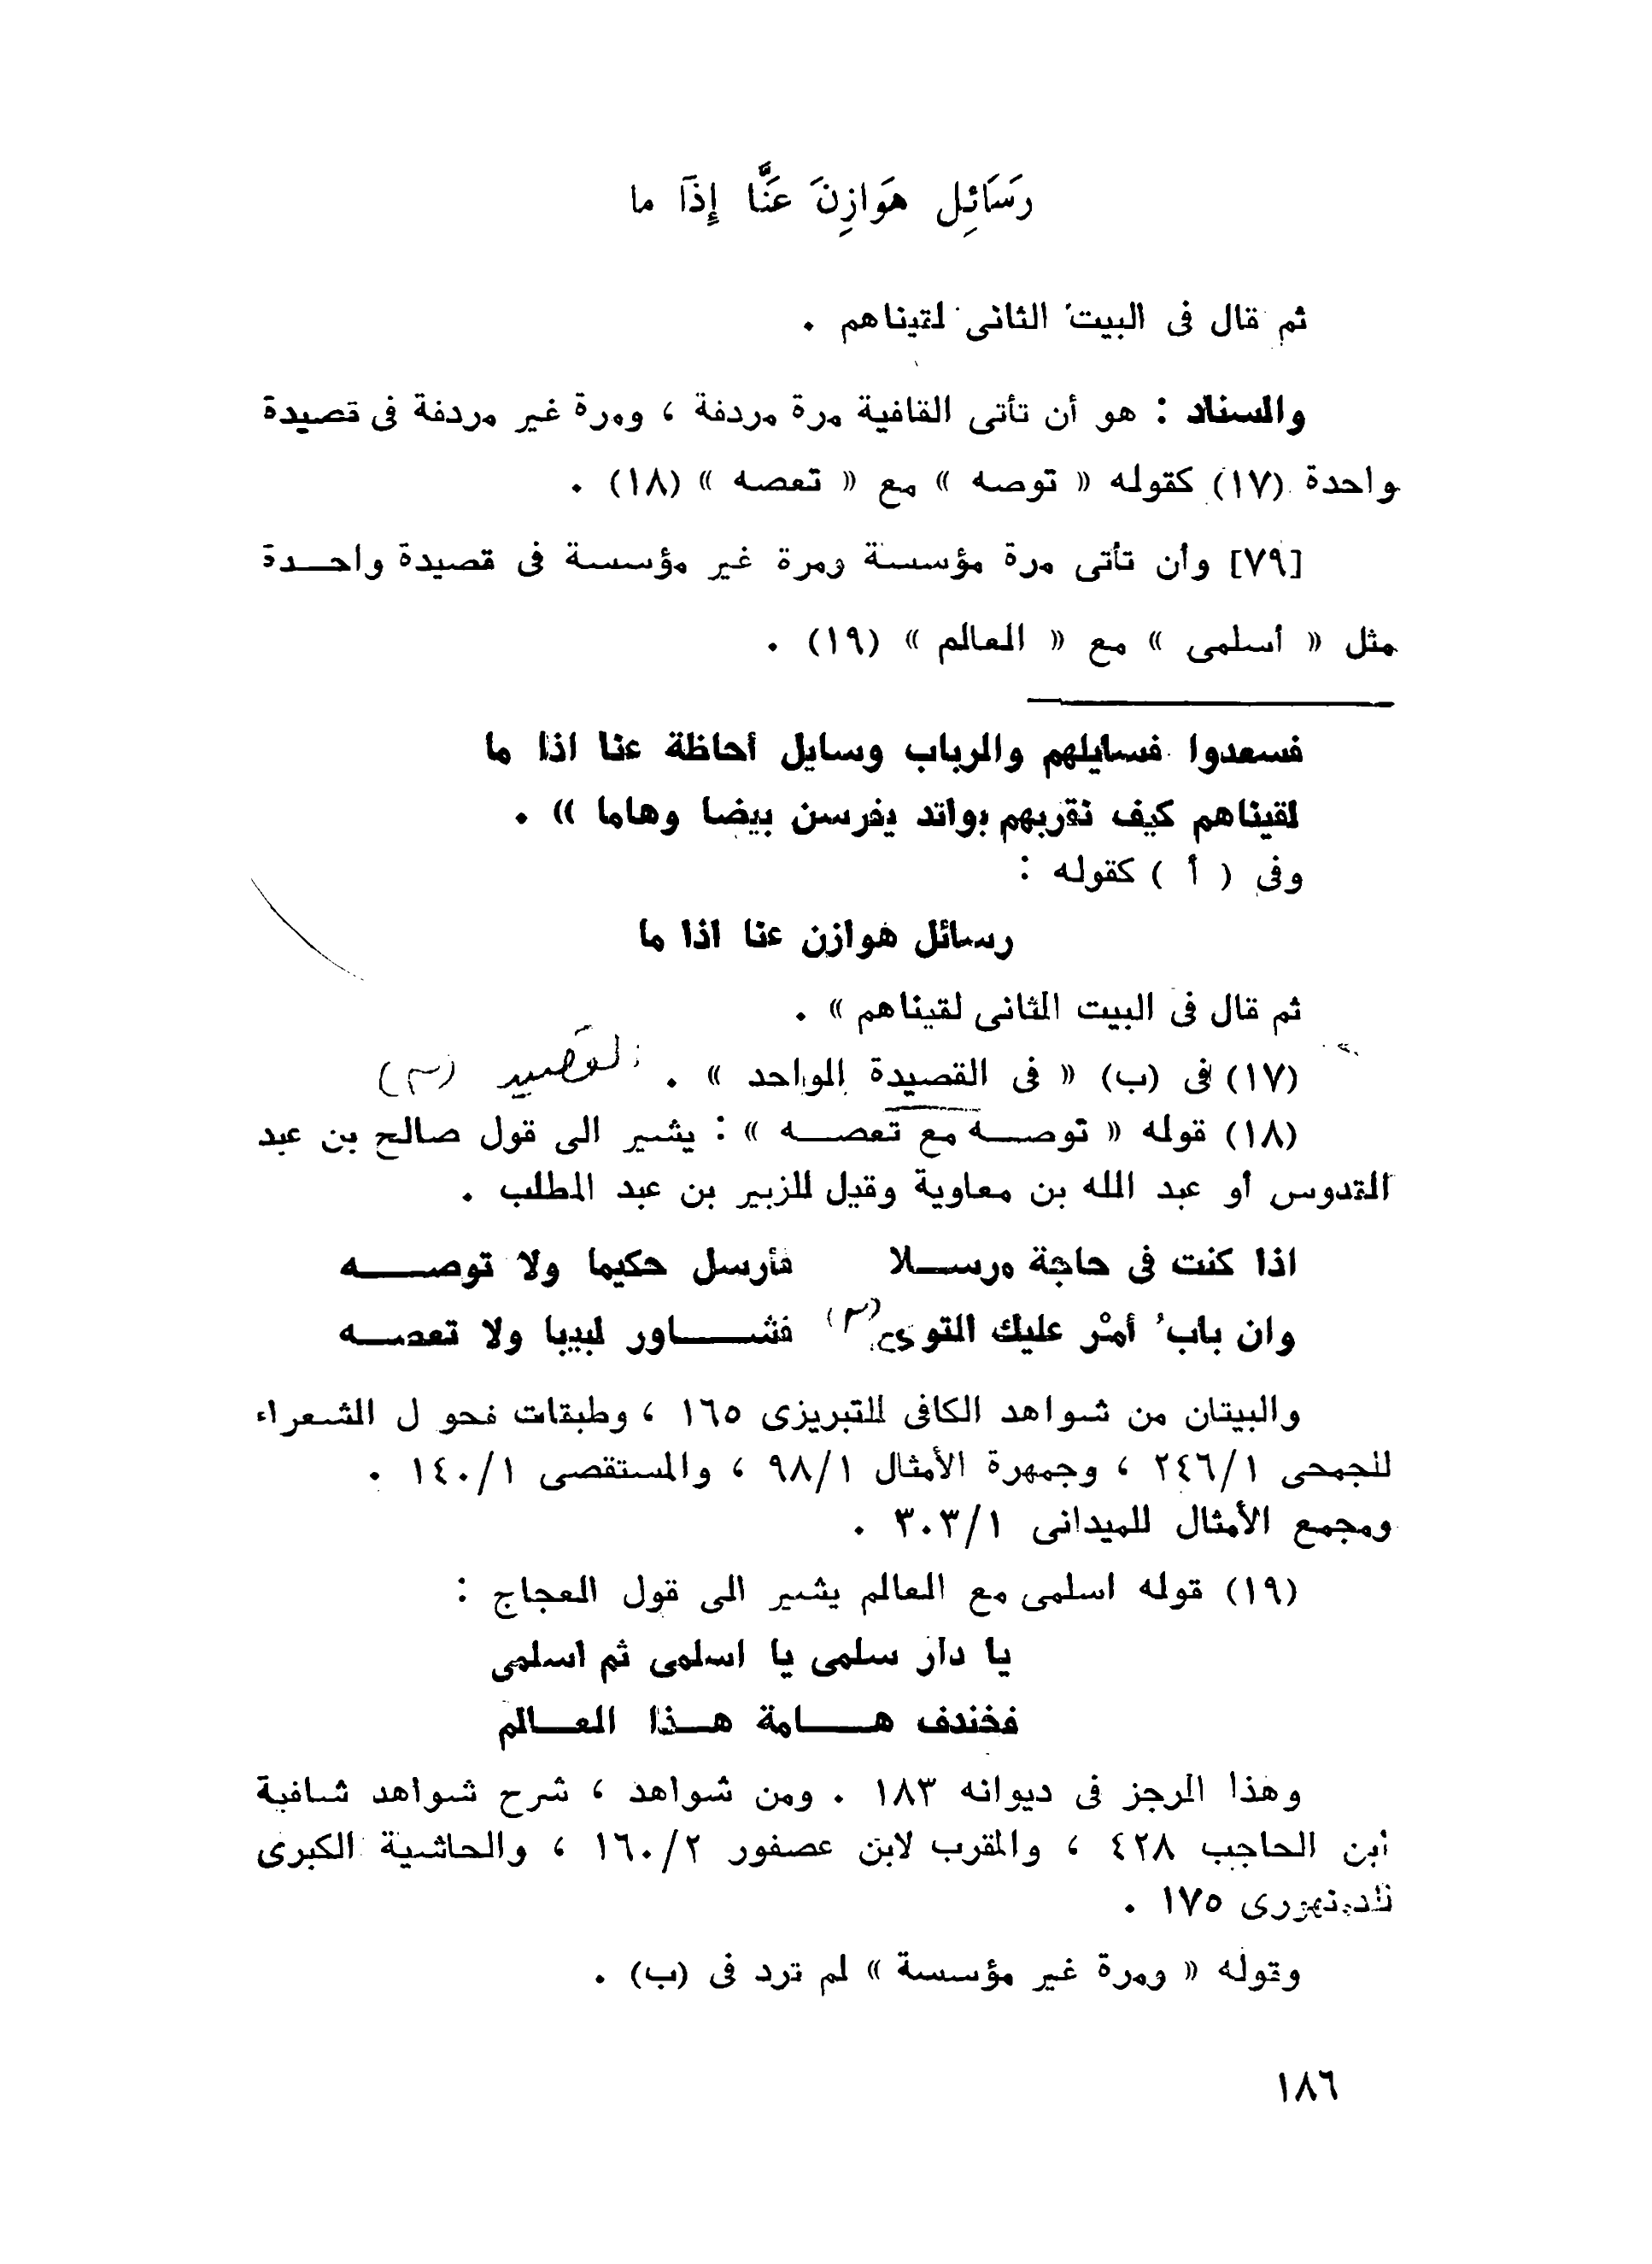 رَسَائِل هَوَازِنَ عَنَّا إِذَا ما
ثم قال فى البيت الثانى لقيناهم .
والسناد : هو أن تأتى القافية مرة مردفة ، ومرة غير مردفة فى قصيدة
واحدة (١٧) كقوله « توصه » مع « تعصه » (١٨) .
[٧٩] وأن تأتى مرة مؤسسة ومرة غير مؤسسة فى قصيدة واحدة
مثل « أسلمى » مع « العالم » (١٩) .
فسعدوا فسايلهم والرباب وسايل أحاظة عنا اذا ما
لقيناهم كيف نقربهم بواتد يفرسن بيضا وهاما » .
وفى ( أ ) كقوله :
رسائل هوازن عنا اذا ما
ثم قال فى البيت الثانى لقيناهم » .
(١٧) فى (ب) « فى القصيدة الواحد » .
(١٨) قوله « توصه مع تعصه » : يشير الى قول صالح بن عبد
القدوس أو عبد الله بن معاوية وقيل للزبير بن عبد المطلب .
اذا كنت فى حاجة مرسلا فأرسل حكيما ولا توصه
وان باب أمر عليك التوى فشاور لبيبا ولا تعصه
والبيتان من شواهد الكافى للتبريزى ١٦٥ ، وطبقات فحو ل الشعراء
للجمحى ٢٤٦/١ ، وجمهرة الأمثال ٩٨/١ ، والمستقصى ١٤٠/١ .
ومجمع الأمثال للميدانى ٣٠٣/١ .
(١٩) قوله اسلمى مع العالم يشير الى قول العجاج :
يا دار سلمى يا اسلمى ثم اسلمى
فخندف هامة هذا العالم
وهذا الرجز فى ديوانه ١٨٣ . ومن شواهد ، شرح شواهد شافية
أبن الحاجب ٤٢٨ ، والمقرب لابن عصفور ١٦٠/٢ ، والحاشية الكبرى
للدمنهورى ١٧٥ .
وقوله « ومرة غير مؤسسة » لم ترد فى (ب) .
١٨٦